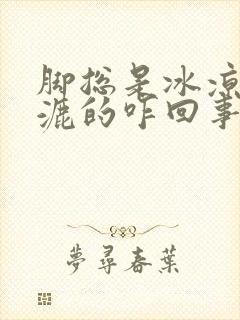 脚总是冰凉
漉的咋回事
夢尋春葉